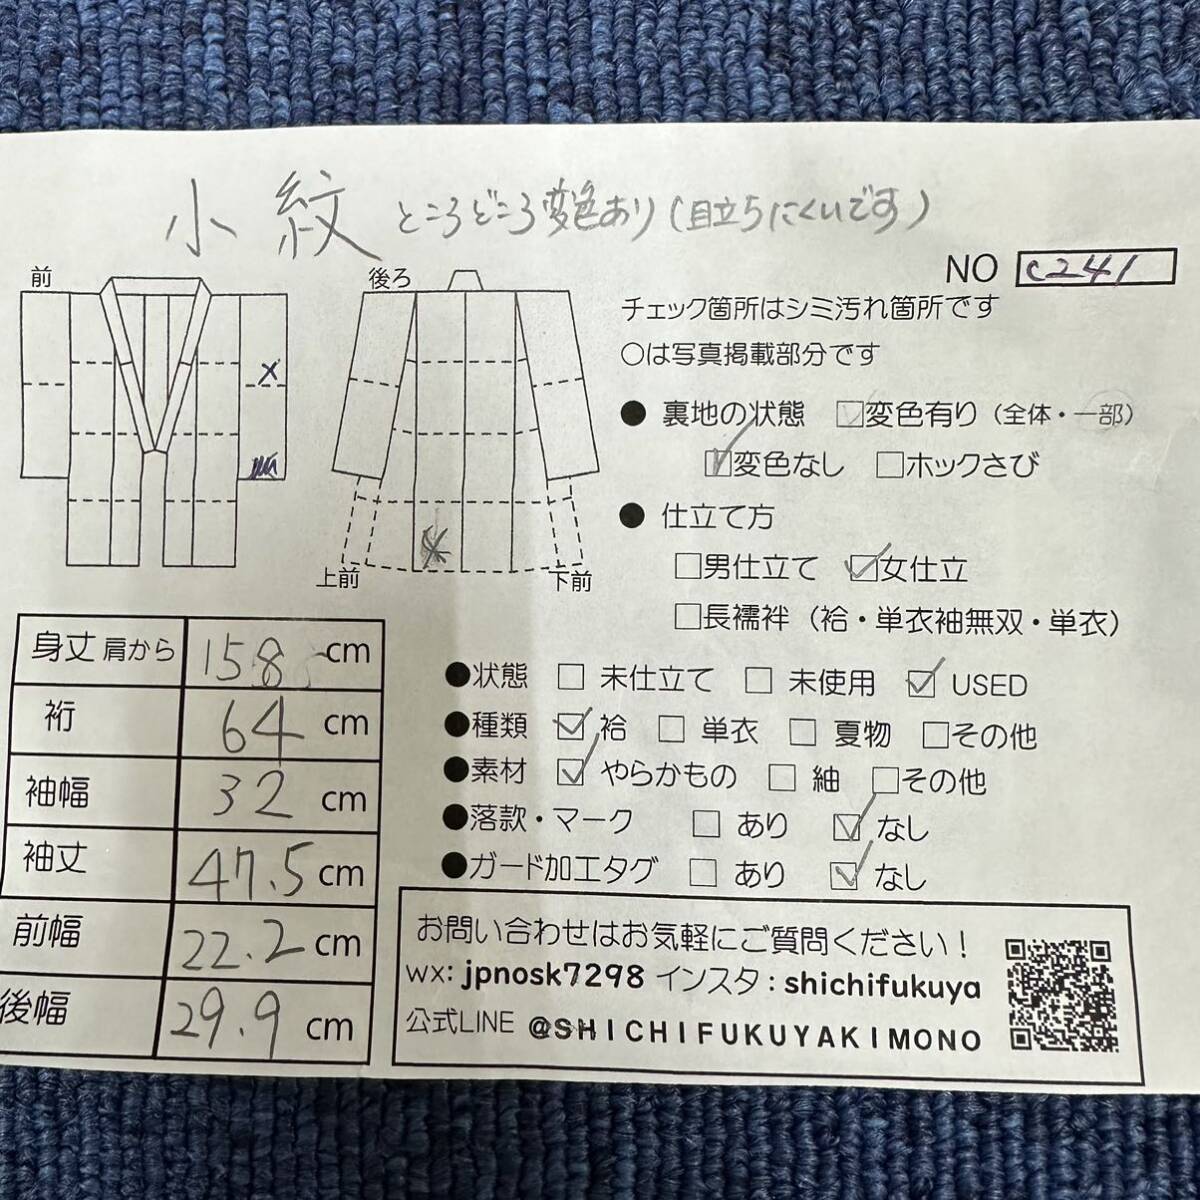 小紋 ところどころ変色あり(目立ちにくいです)
NO C241
前
後ろ
上前
下前
チェック箇所はシミ汚れ箇所です
○は写真掲載部分です
● 裏地の状態 ☑変色有り (全体・一部)
☑変色なし □ホックさび
● 仕立て方
□男仕立て ☑女仕立
□長襦袢 (袷・単衣袖無双・単衣)
●状態 □ 未仕立て □ 未使用 ☑ USED
●種類 ☑ 袷 □ 単衣 □ 夏物 □その他
●素材 ☑ やらかもの □ 紬 □その他
●落款・マーク □ あり ☑ なし
●ガード加工タグ □ あり ☑ なし
身丈 肩から 158 cm
裄 64 cm
袖幅 32 cm
袖丈 47.5 cm
前幅 22.2 cm
後幅 29.9 cm
お問い合わせはお気軽にご質問ください!
wx: jpnosk7298 インスタ : shichifukuya
公式LINE @SHICHIFUKUYAKIMONO